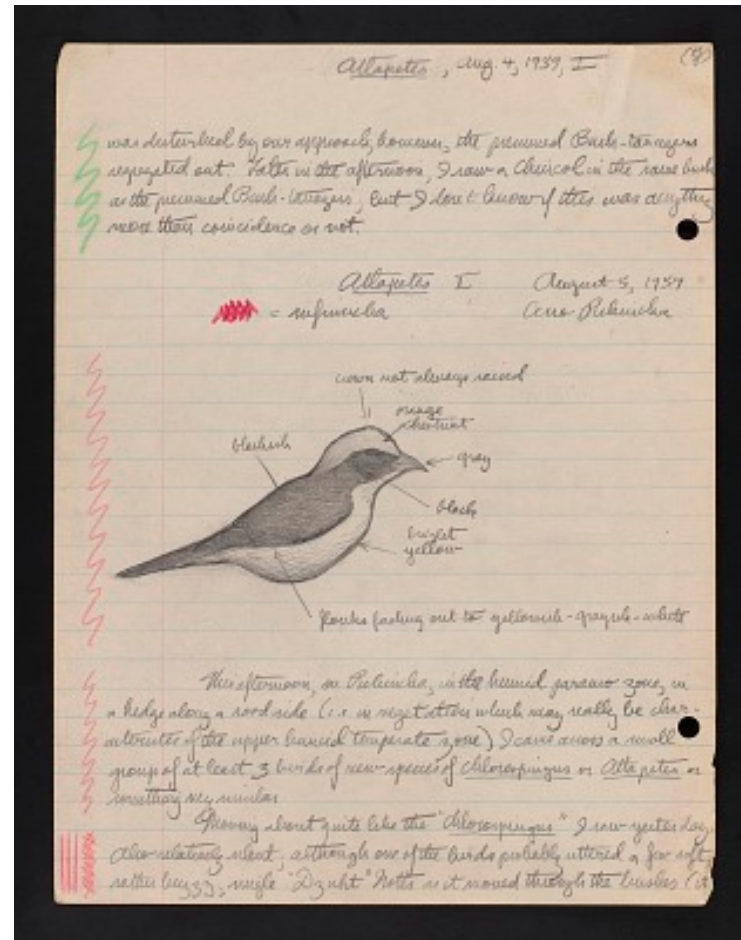 Atlapetes, Aug. 4, 1959, I
was disturbed by our approach, however, the presumed Bush-tanagers
segregated out. Later in the afternoon, I saw a in the same bush
as the presumed Bush-tanagers, but I don't know if this was anything
more than coincidence or not.
Atlapetes I August 5, 1959
= rufinucha Cerro Pichincha
crown not always raised
orange
chestnut
blackish
gray
black
bright
yellow
flanks fading out to yellowish-grayish-white
This afternoon, on Pichincha, in the humid paramo zone, in
a hedge along a road side (i.e. in vegetation which may really be char-
acteristic of the upper humid temperate zone) I came across a small
group of at least 3 birds of new species of Chlorospingus or Atlapetes or
something very similar.
Moving about quite like the "Chlorospingus" I saw yesterday.
Also relatively silent, although one of the birds probably uttered a few soft,
rather buzzy, single "Dzuht" Notes as it moved through the bushes (it